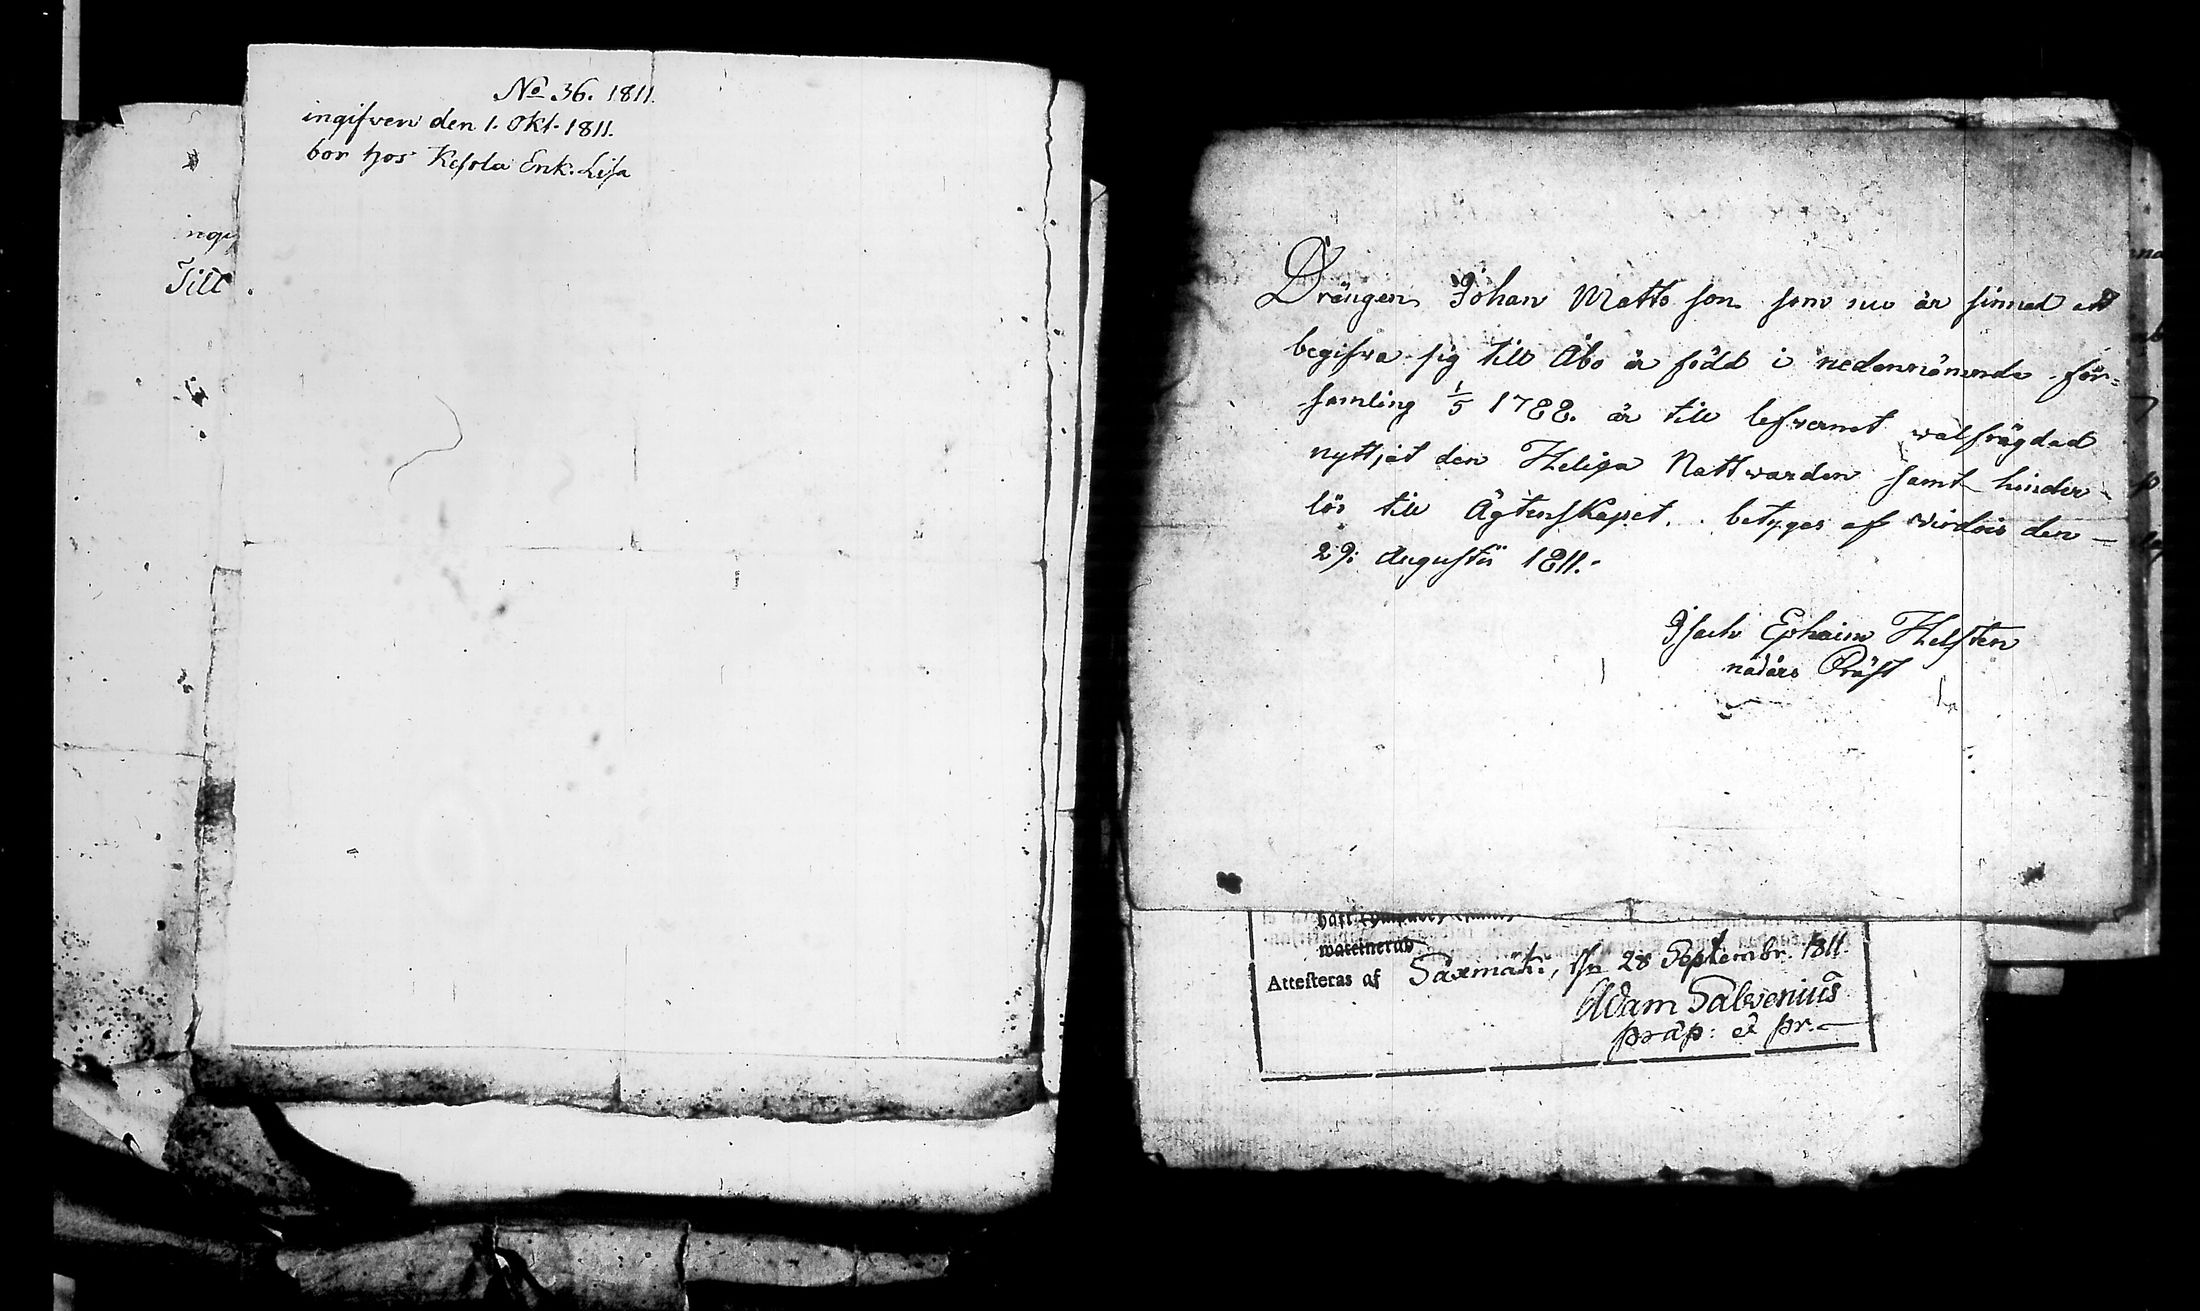 No 36. 1811.
ingifven den 1. Okt. 1811.
bor hos Kesola Enk. Lisa
Till
Drängen Johan Matts son som nu är sinnad att
begifva sig till Åbo är född i nedannämnde för=
samling 1/5 1788. är till lefvernet välfrägdad
nyttjat den Heliga Nattvarden samt hinder-
lös till Ägtenskapet. betyges af Virdois den
29: Augusti 1811.
Isach Ephaim Helsten
nådårs Präst
Attesteras af Saxmäki, 28 Septembr. 1811.
Adam Salvenius
präp: & pr.